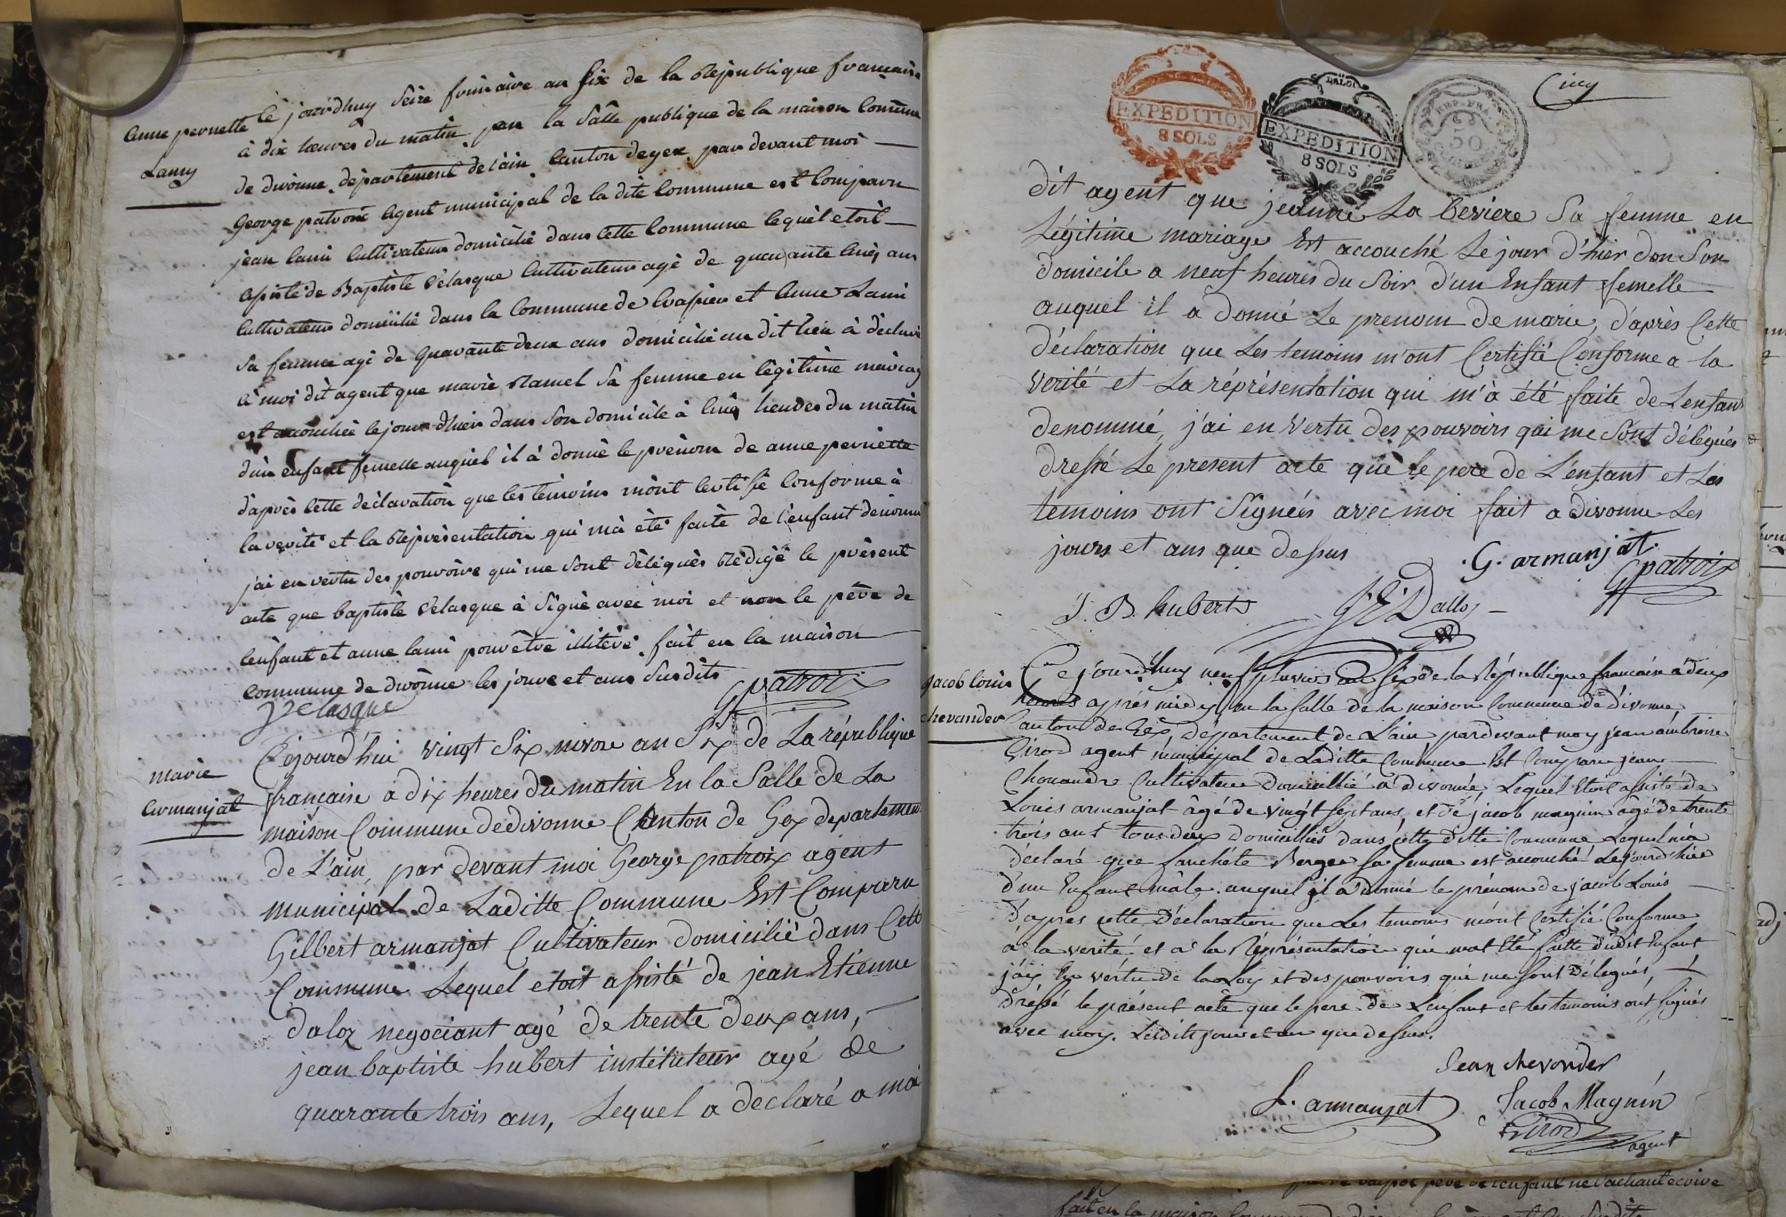 Anne pernette
Lamy
Ce jourdhuy seize frimaire an six de la République francaise
à dix heures du matin, par la Salle publique de la maison Commune
de divonne, département de l'ain, Canton de gex, par devant moi
George patroix agent municipal de la dite Commune est Comparu
jean lami Cultivateur domicilié dans cette Commune lequel etoit
assisté de Baptiste Velasque Cultivateur agé de quarante cinq ans
Cultivateur domicilié dans la Commune de et Anne Lami
sa femme agé de quarante deux ans domicilié au dit lieu à déclaré
à moi dit agent que marie Ramel sa femme en légitime mariag
est accouchée le jour dhier dans son domicile à cinq heures du matin
d'un enfant femelle auquel il à donné le prénom de anne pernette
d'après cette déclaration que les témoins m'ont certifié conforme à
la vérité et la Représentation qui m'à été faite de l'enfant dénommé
j'ai en vertu des pouvoirs qui me sont délégués Rédigé le présent
acte que baptiste Velasque à signé avec moi et non le père de
l'enfant et anne lami pour être illitéré. fait en la maison
commune de divonne les jours et ans susdits
Gpatroix
Velasque
marie
armanjat
Cejourd'hui vingt six nivose an six de La république
française à dix heures du matin En la Salle de La
maison Commune de divonne Canton de Gex departement
de L'ain, par devant moi George patroix agent
municipal de Laditte Commune Est Comparu
Gilbert armanjat Cultivateur domicilié dans Cette
Commune Lequel etoit assisté de jean Etienne
daloz negociant agé de trente deux ans,
jean baptiste hubert instituteur agé de
quarante trois ans, Lequel a declaré a moi
Cinq
EXPEDITION
8 SOLS
EXPEDITION
8 SOLS
dit agent que jeanne La beviere Sa femme en
Légitime mariage Est accouché Le jour d'hier dan Son
domicile a neuf heures du Soir d'un Enfant femelle
auquel il a donné Le prenom de marie, d'après Cette
déclaration que Les temoins m'ont Certifié Conforme a la
verité et La réprésentation qui m'à été faite de L'enfant
denommé, j'ai en vertu des pouvoirs qui me Sont délégués
dressé Le present acte que le pere de L'enfant et Les
temoins ont Signées avec moi fait a divonne Les
jours et ans que dessus
G. armanjat
Gpatroix
J. B. hubert
J E Dalloz
Jacob Louis
chevander
Cejourd'huy neuf pluviose an Six de la République francaise à deux
heures après midy, en la salle de la maison Commune de divonne
canton de Gex, Département de L'ain pardevant moy jean ambroise
Girod agent municipal de Laditte Commune Est Comparu jean
Chevandre Cultivateur domicillié à divonne, Lequel Etoit assisté de
Louis armanjat âgé de vingt sept ans, et de jacob magnin agé de trente
trois ans tous deux domicilliés dans cette ditte Commune Lequel m'a
déclaré que fanchéte Berger sa femme est accouché Lejourd'hier
d'un Enfant mâle auquel il a donné le prénom de jacob Louis
d'après cette Déclaration que Les temoins m'ont Certifié Conforme
à la verité, et à la Réprésentation qui m'at Eté faitte dudit Enfant
j'ai En vertu de la Loy et des pouvoirs qui me sont Délegués,
dréssé le présent acte que le pere de L'enfant et les temoins ont signés
avec moy. Lesdits jour et an que dessus.
Jean chevonder
L. armanjat
Jacob Magnin
Girod
agent